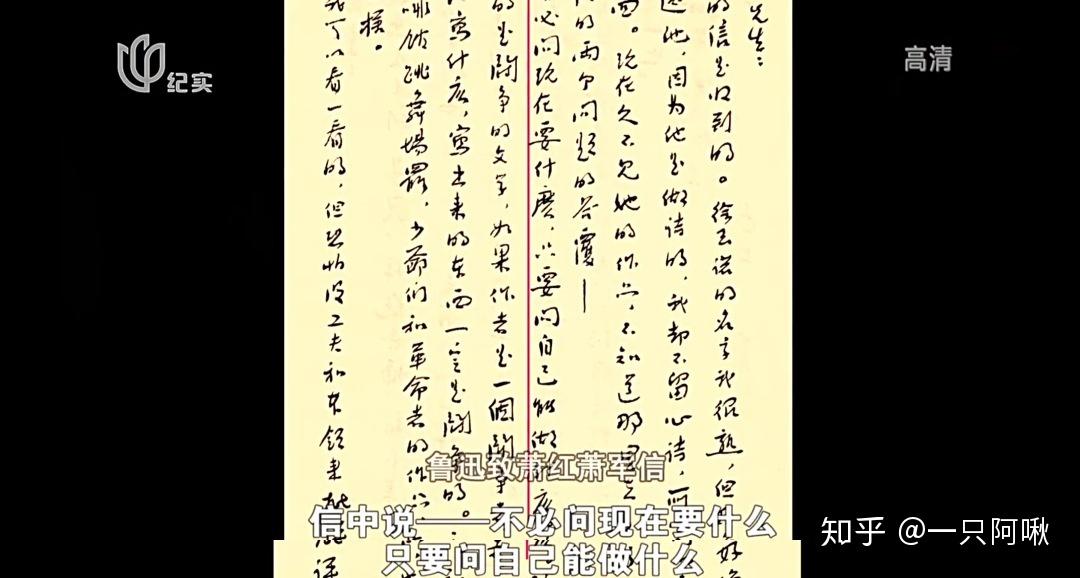 纪实
高清
先生：
的信是收到的。徐玉诺的名字我很熟，但
过他，因为他是做诗的，我却不留心诗，所
面。现在久不见她的作品，不知道那里去
的两个问题的答覆——
必问现在要什麽，只要问自己能做什麽
的是鬪争的文学，如果作者是一個鬪争者
写什広，寫出来的东西一定是鬪争的。
啡馆跳舞場罷，少爺们和革命者的作品
樣。
我可以看一看的，但恐怕没工夫和本领来批评
鲁迅致萧红萧军信
信中说——不必问现在要什么
只要问自己能做什么
知乎 @一只阿啾